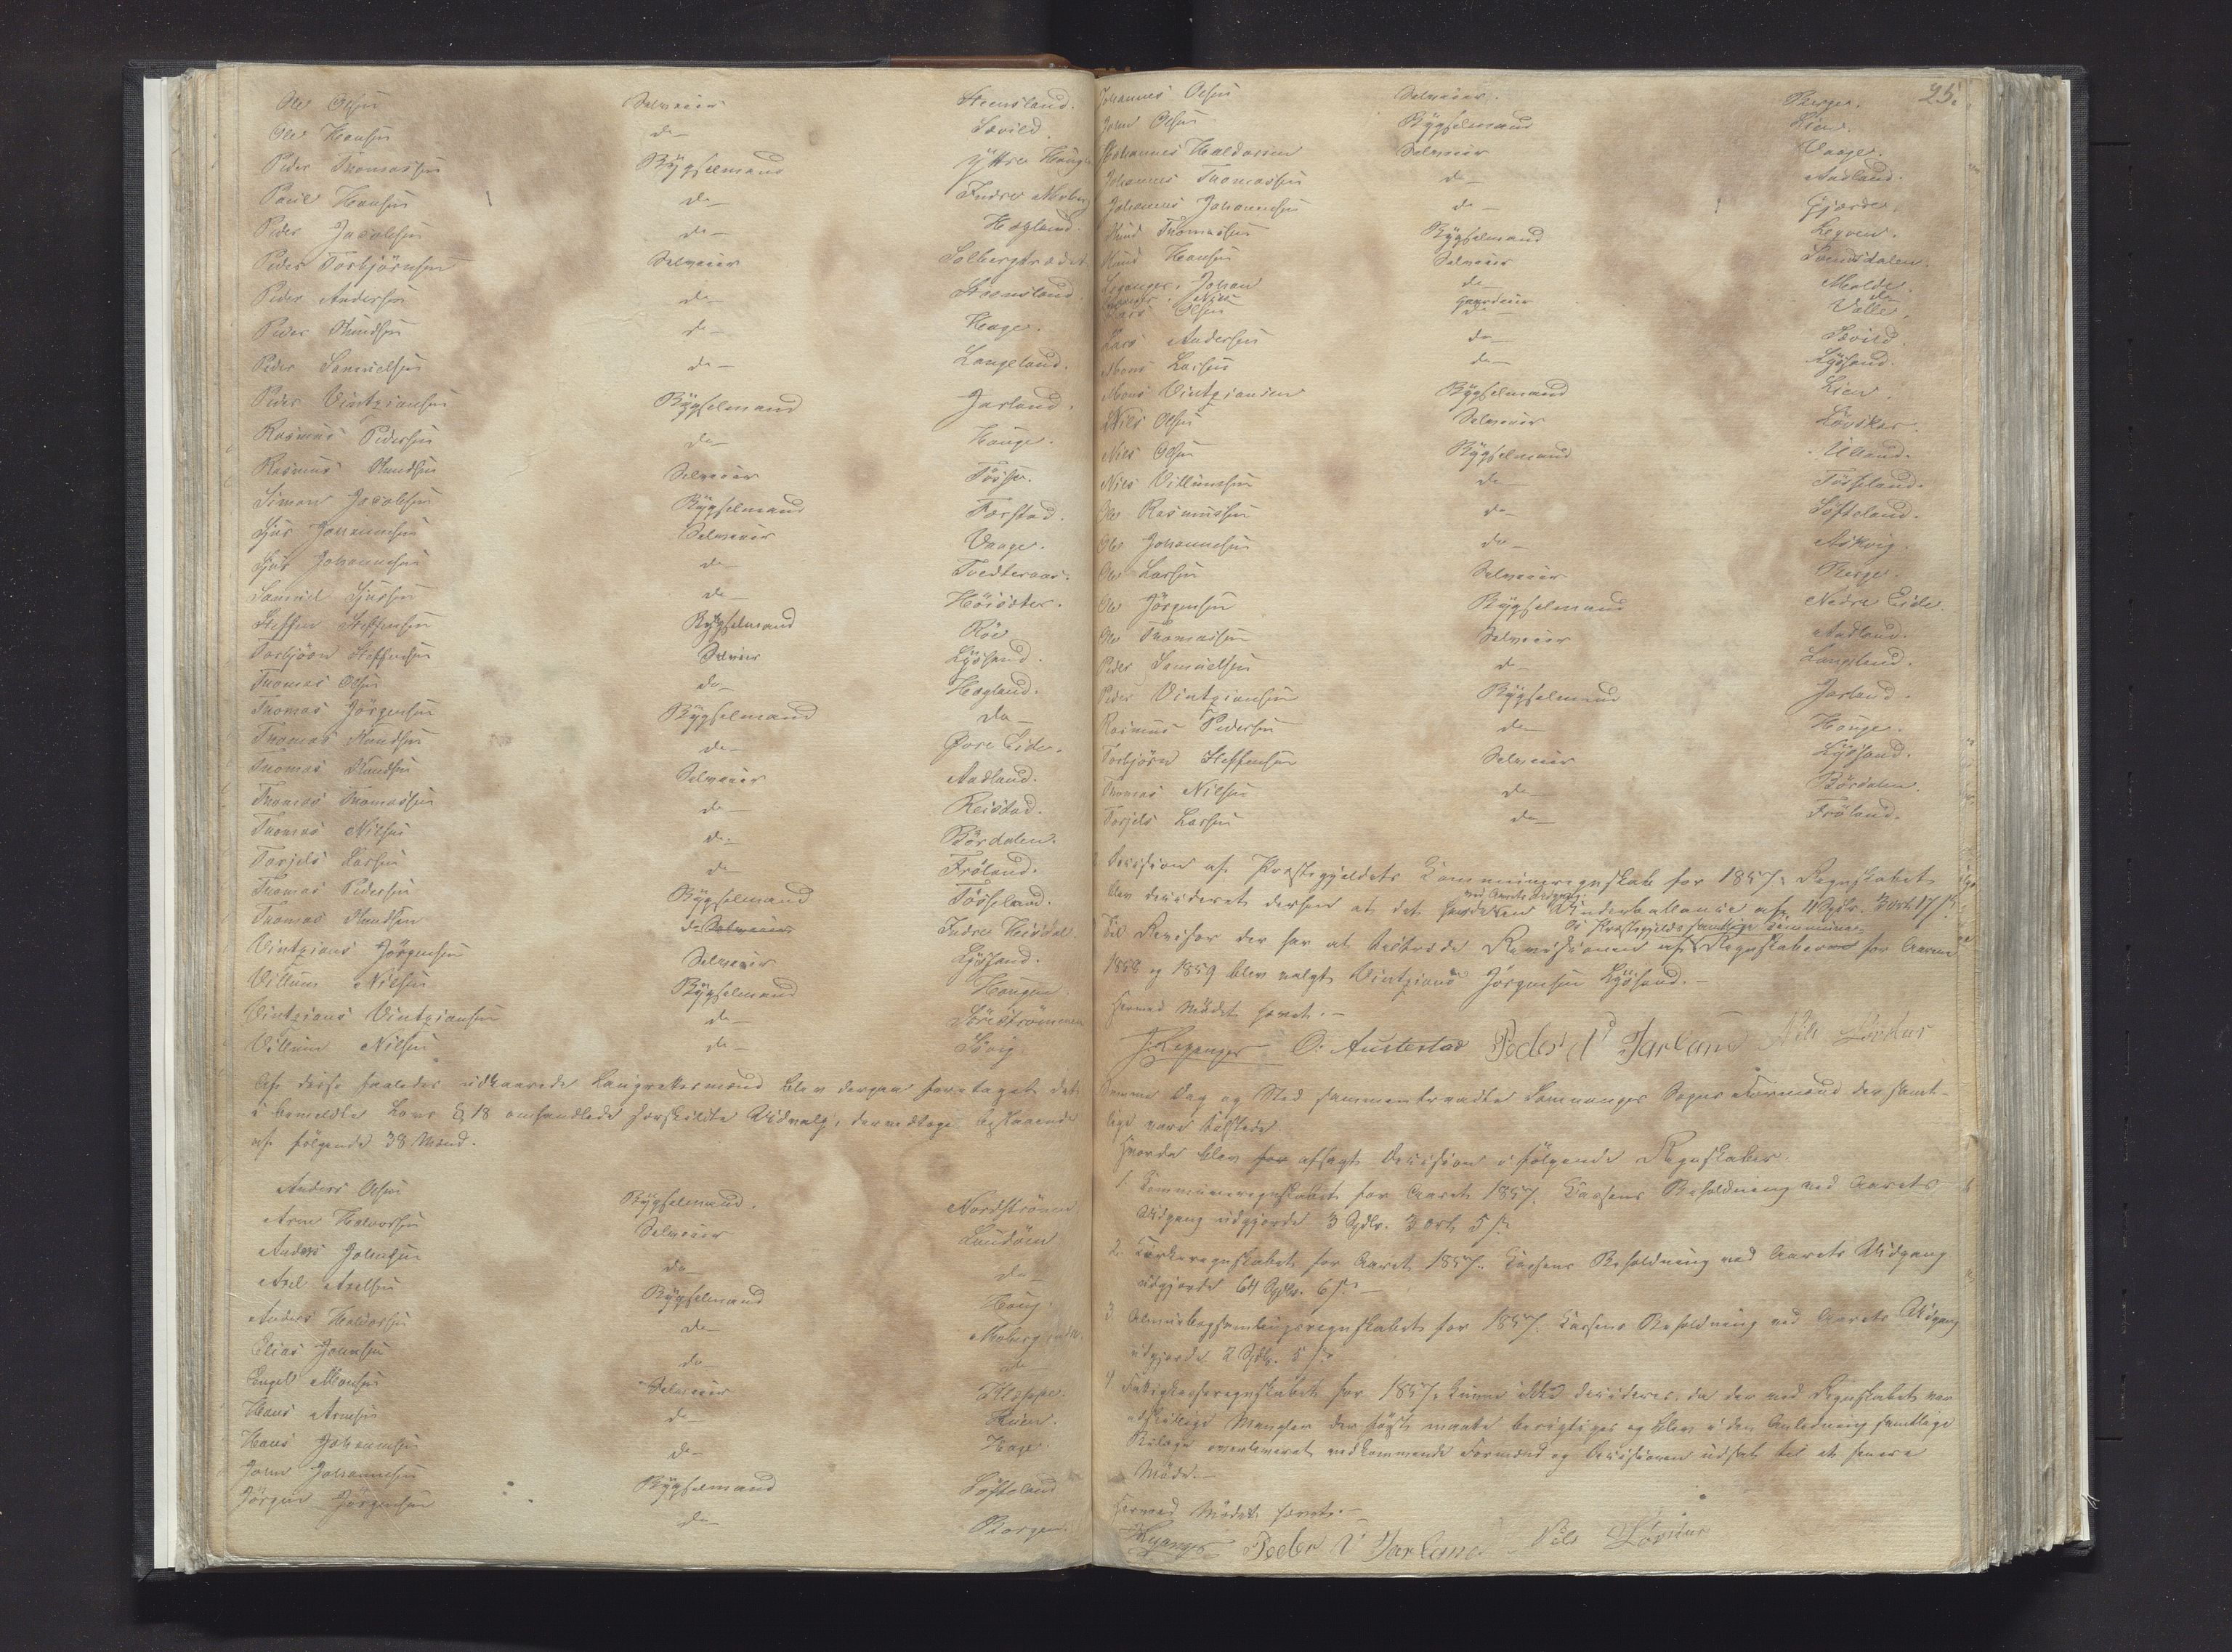 Ole Olsen Selveier Steensland.
Ole Hansen do Sævild
Peder Thomassen Bygselmand Yttre Houge
Paul Hansen do Indre Moberg
Peder Jacobsen do Hegland.
Peder Torbjörnsen Selveier Solbergstræ
Peder Andersen do Steensland
Peder Knudsen do Hage.
Peder Samuelsen do Langeland.
Peder Vintziansen Bygselmand Jarland.
Rasmus Pedersen do Houge.
Rasmus Knudsen Selveier Tösse.
Simon Jacobsen Bygselmand Forstad.
Sjur Johannessen Selveier Vaage.
Sjur Johannessen do Tvedteraas.
Samuel Sjursen do Höisæter.
Steffen Steffensen Bygselmand Röe
Torbjörn Steffensen Selveier Lysand.
Thomas Olsen do Hegland.
Thomas Jörgensen Bygselmand do
Thomas Knudsen do Övre Eide.
Thomas Knudsen Selveier Aadland.
Thomas Thomassen do Reistad.
Thomas Nilsen do Bördalen.
Torjels Larsen do Fröland.
Thomas Pedersen Bygselmand Tösseland.
Thomas Knudsen do Selveier Indre Heisdal
Vintzians Jörgensen Selveier Lysand.
Villum Nilsen Bygselmand Hougen
Vintzians Vintziansen do Söreströmmen
Villum Nilsen do Sævig
Af disse saaledes udkaarede Laugrettesmænd blev derpaa foretaget det
i bemeldte Lovs § 18 omhandlede særskildte Udvalg, derved toges bestaaende
af følgende 38 Mænd.
Anders Olsen Bygselmand. Nordströmen.
Arne Halvorsen Selveier Lundöen
Anders Johnsen do do
Axel Axelsen Bygselmand Houg.
Anders Haldorsen do Moberg indre
Elias Johnsen do do
Engel Monsen Selveier Kleppe.
Hans Arnesen do Skien.
Hans Johannessen do Hage.
John Johannessen Bygselmand Söfteland
Jörgen Jörgensen do Borgen.
25.
Johannes Olsen Selveier. Berge.
John Olsen Bygselmand Lien.
Johannes Haldorsen Selveier Vaage.
Johannes Thomassen do Aadland.
Johannes Johannessen do Gjerde.
Knud Thomassen Bygselmand Legren.
Knud Hansen Selveier Sundsdalen.
Leganger, Johan do Molde.
Nils Gaardeier do
Lars Olsen do Valle.
Lars Andersen do Sævild
Mons Larsen do Lysand.
Mons Vintziansen Bygselmand Lien.
Nils Olsen Selveier Lövskar.
Nils Olsen Bygselmand Ulland.
Nils Villumsen do Tösseland.
Ole Rasmussen do Söfteland.
Ole Johannessen do Askvig.
Ole Larsen Selveier Berge.
Ole Jörgensen Bygselmand Nedre Eide.
Ole Thomassen Selveier Aadland.
Peder Samuelsen do Langeland.
Peder Vintziansen Bygselmand Jarland.
Rasmus Pedersen do Houge.
Torbjörn Steffensen Selveier Lysand.
Thomas Nilsen do Bördalen.
Torjels Larsen do Fröland.
Decision af Præstegjeldets Communeregnskab for 1857. Regnskabet
ved Aarets Udgang
blev decideret derhen at det havde en Underballance af 11 Spdlr. 3 ort 17 s.
de Præstegjelds samtlige Commune
Til Revisor der har at tiltræde Revisionen af Regnskaberne for Aarene
1858 og 1859 blev valgt Vintzians Jörgensen Lysand.
Hermed Mödet hævet.
J. Leganger O. Austestad Peder V Jarland Nils Lövskar
Samme Dag og Sted sammentraadte Samnanger Sogns Formænd der samt-
lige vare tilstede.
Hvorda blev for afsagt Decision i følgende Regnskaber.
1. Communeregnskabet for Aaret 1857. Kassens Beholdning ved Aarets
Udgang udgjorde 3 Spdlr. 3 ort 5 s
2. Kirkeregnskabet for Aaret 1857. Kassens Beholdning ved Aarets Udgang
udgjorde 64 Spdlr. 6 s.
3. Almuebogsamlingsregnskabet for 1857. Kassens Beholdning ved Aarets Udgang
udgjorde 2 Spdlr. 5 s.
4. Fattigkasseregnskabet for 1857 kunne ikke decideres, da der ved Regnskabet var
adskillige Mangler der først maatte berigtiges og blev i den Anledning samtlige
Bilage overleveret vedkommende Formænd og Decisionen udsat til et senere
Möde.
Hermed Mödet hævet.
Leganger Peder V Jarland Nils Lövskar